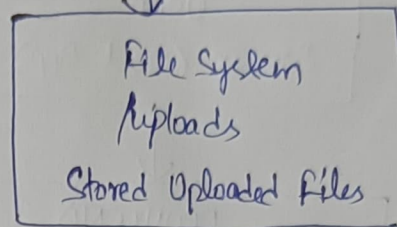 File System
/uploads
Stored Uploaded Files